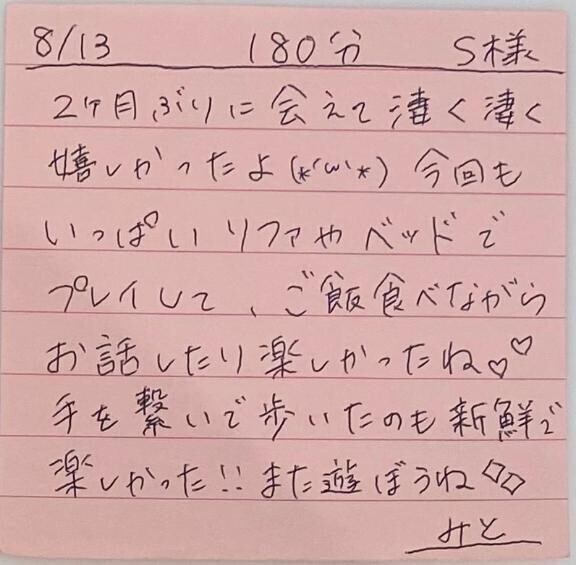 8/13 180分 S様
2ヶ月ぶりに会えて凄く凄く
嬉しかったよ(*´ω`*) 今回も
いっぱいリファやベッドで
プレイして、ご飯食べながら
お話したり楽しかったね♡♡
手を繋いで歩いたのも新鮮で
楽しかった!!また遊ぼうね
みと